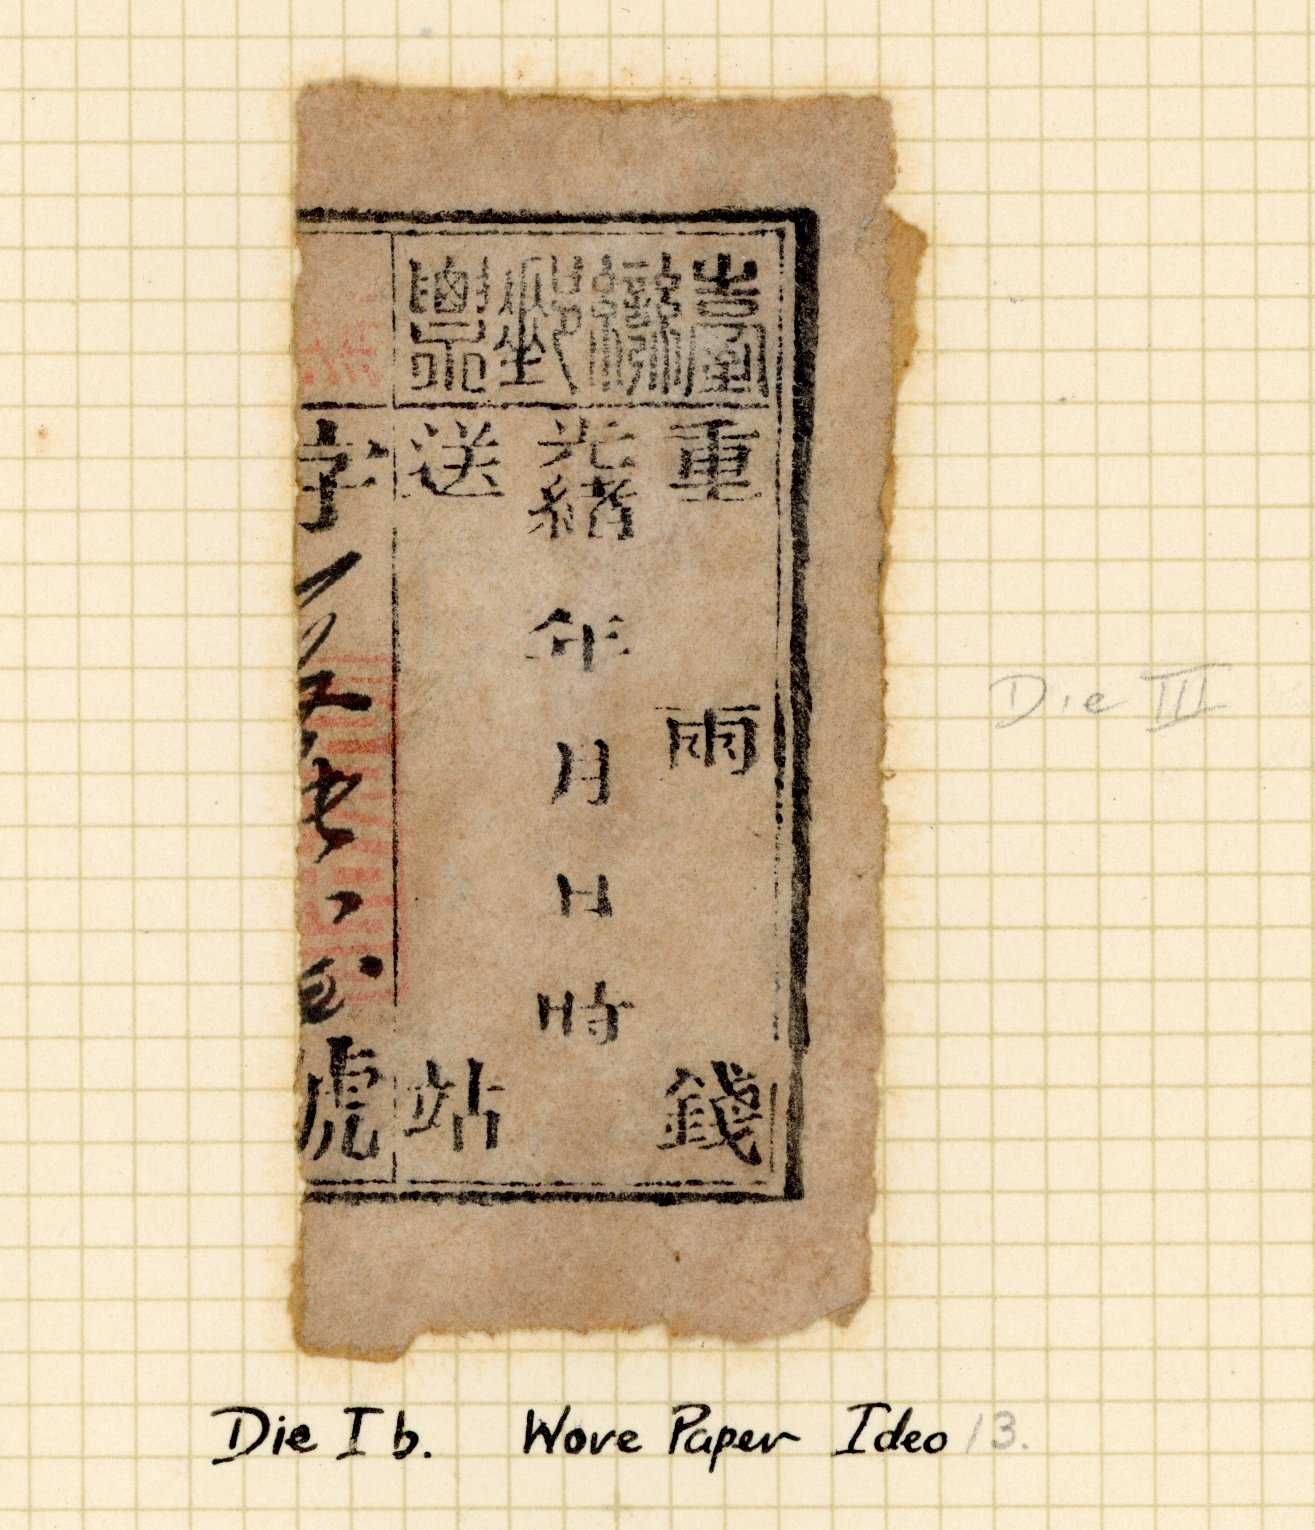 臺灣郵票
重 兩 錢
光緒 年 月 日 時
送 站
字 號
Die III
Die I b. Wove Paper Ideo 13.